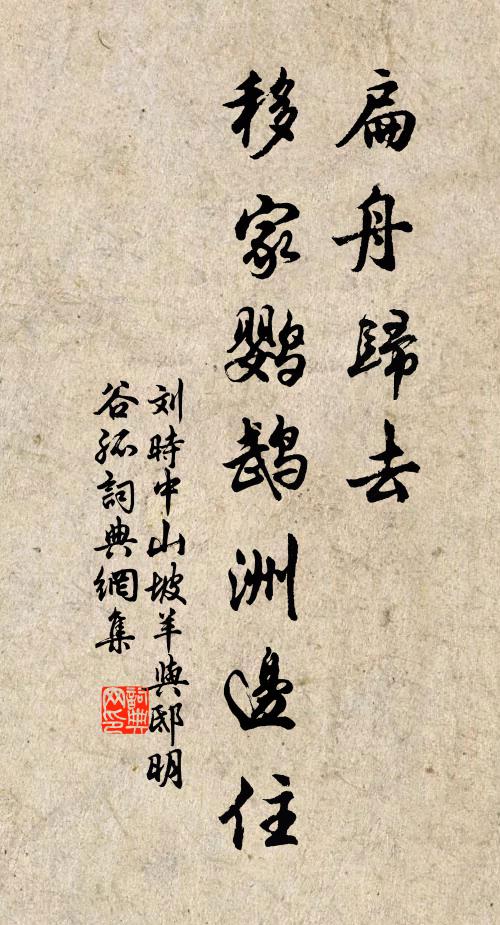 扁舟歸去
移家鹦鹉洲邊住
刘時中山坡羊與邸明
谷孤詞典網集
詞典网印